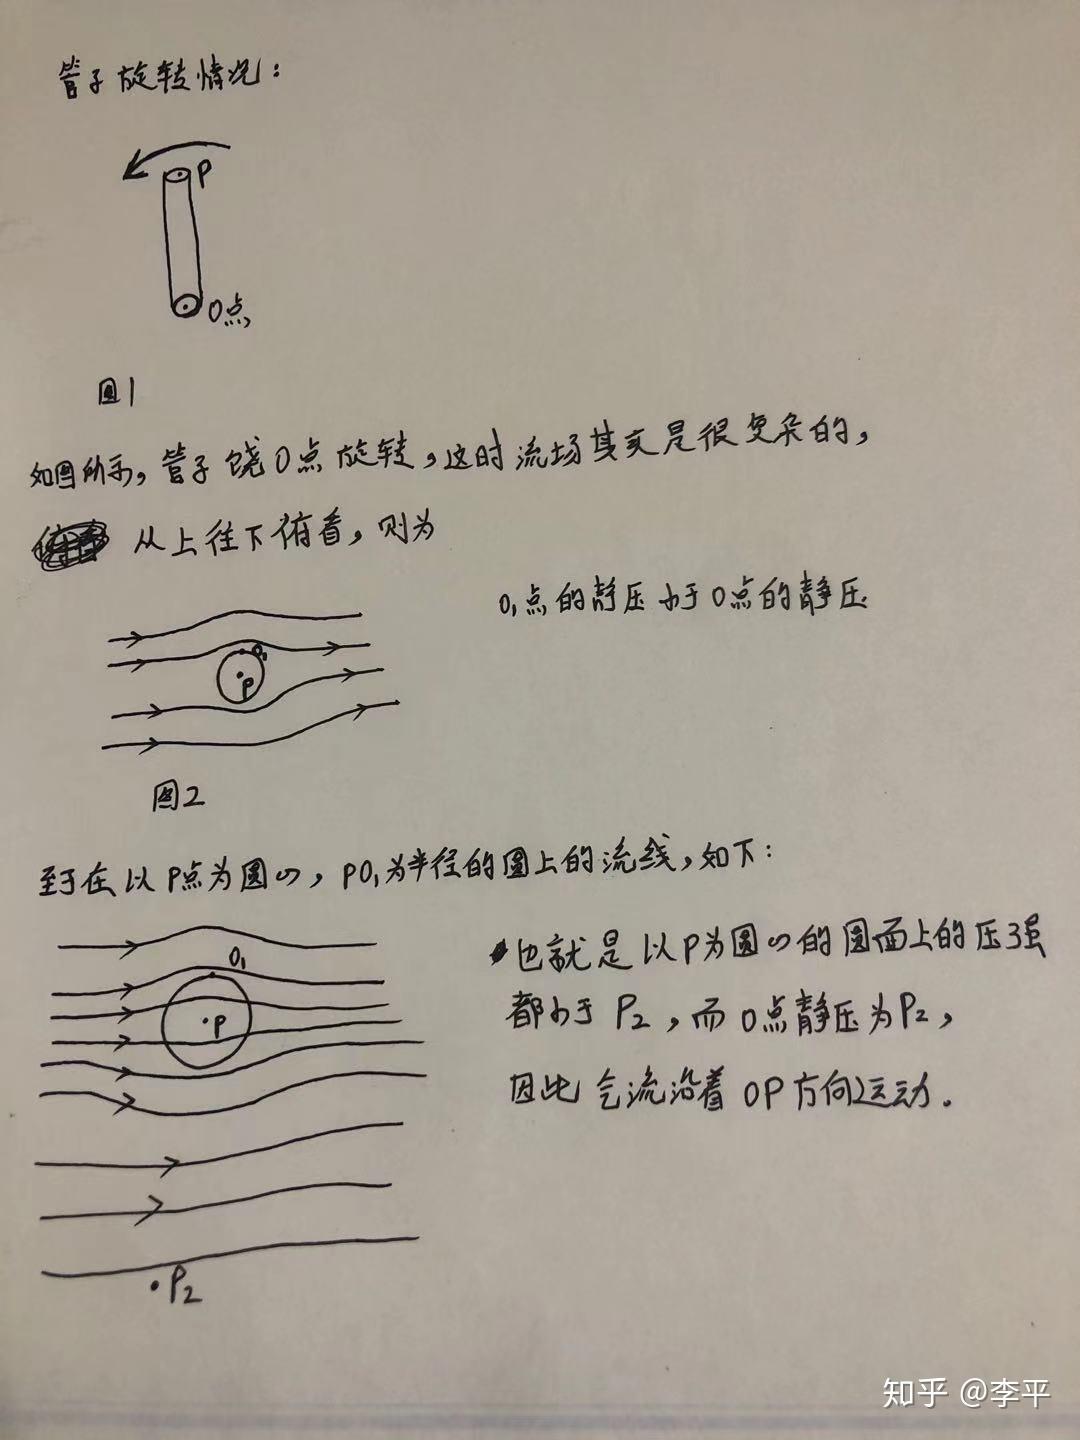 管子旋转情况：
P
O点
图1
如图所示，管子饶O点旋转，这时流场其实是很复杂的，
从上往下俯看，则为
O₁点的静压小于O点的静压
O₁
P
图2
至于在以P点为圆心，PO₁为半径的圆上的流线，如下：
O₁
P
也就是以P为圆心的圆面上的压强
都小于P₂，而O点静压为P₂，
因此气流沿着OP方向运动.
P₂
知乎 @李平